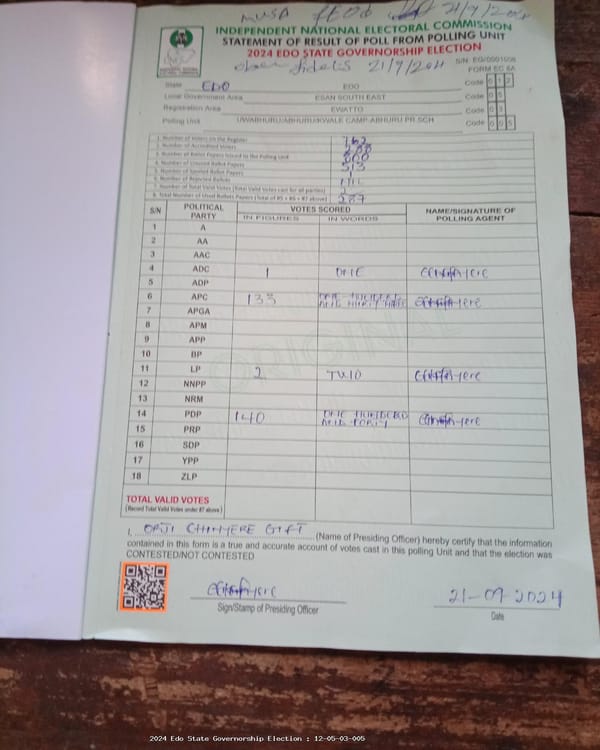 MUSA FEOd 21/9/2024
INDEPENDENT NATIONAL ELECTORAL COMMISSION
STATEMENT OF RESULT OF POLL FROM POLLING UNIT
2024 EDO STATE GOVERNORSHIP ELECTION
fidelis 21/9/2024
FORM EC 8A
State EDO EDO Code 1 2
Local Government Area ESAN SOUTH EAST Code 0 5
Registration Area EWATTO Code 0 3
Polling Unit UWABHURU/ABHURU/KWALE CAMP-ABHURU PR.SCH Code 0 0 5
1. Number of Voters on the Register 762
2. Number of Accredited Voters
3. Number of Ballot Papers Issued to the Polling Unit
4. Number of Unused Ballot Papers 513
5. Number of Spoiled Ballot Papers
6. Number of Rejected Ballots
7. Number of Total Valid Votes (Total Valid Votes cast for all parties)
8. Total Number of Used Ballots Papers (Total of #5 + #6 + #7 above) 287
S/N POLITICAL PARTY VOTES SCORED IN FIGURES IN WORDS NAME/SIGNATURE OF POLLING AGENT
1 A
2 AA
3 AAC
4 ADC 1 ONE
5 ADP
6 APC 133 ONE HUNDRED AND THIRTY THREE
7 APGA
8 APM
9 APP
10 BP
11 LP 2 TWO
12 NNPP
13 NRM
14 PDP 140 ONE HUNDERD AND FORTY
15 PRP
16 SDP
17 YPP
18 ZLP
TOTAL VALID VOTES
(Record Total Valid Votes under #7 above)
I, ORJI CHINYERE GIFT (Name of Presiding Officer) hereby certify that the information
contained in this form is a true and accurate account of votes cast in this polling Unit and that the election was
CONTESTED/NOT CONTESTED
Sign/Stamp of Presiding Officer
21-09-2024
Date
2024 Edo State Governorship Election : 12-05-03-005